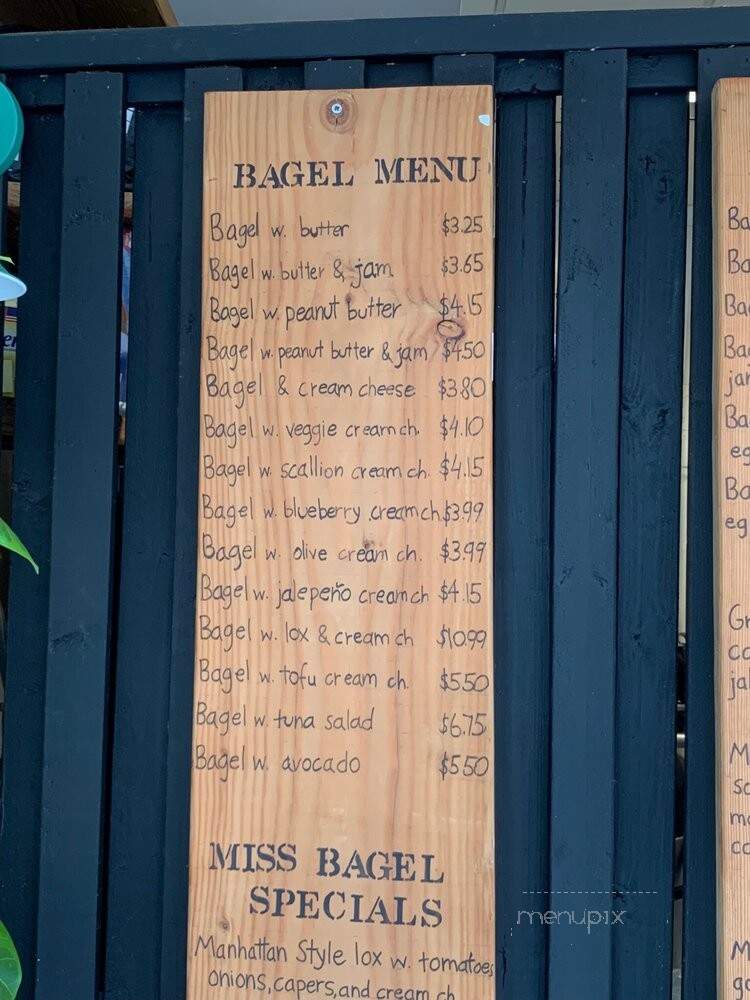 BAGEL MENU
Bagel w. butter $3.25
Bagel w. butter & jam $3.65
Bagel w. peanut butter $4.15
Bagel w. peanut butter & jam $4.50
Bagel & cream cheese $3.80
Bagel w. veggie cream ch. $4.10
Bagel w. scallion cream ch. $4.15
Bagel w. blueberry cream ch $3.99
Bagel w. olive cream ch. $3.99
Bagel w. jalepeño cream ch $4.15
Bagel w. lox & cream ch $10.99
Bagel w. tofu cream ch. $5.50
Bagel w. tuna salad $6.75
Bagel w. avocado $5.50
MISS BAGEL
SPECIALS
Manhattan Style lox w. tomatoes
onions, capers, and cream ch
menupix